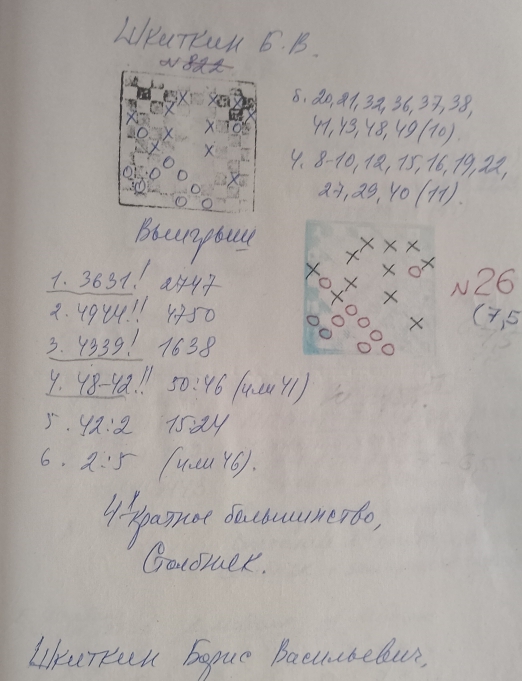 Шкиткин Б.В.
№822
б. 20,21,32,36,37,38,
41,43,48,49(10).
ч. 8-10,12,15,16,19,22,
27,29,40(11).
Выигрыш
№26
(7,5
1. 3631! 2747
2. 4944!! 4750
3. 4339! 1638
4. 48-42!! 50:46 (или 41)
5. 42:2 15:24
6. 2:5 (или 46).
4-х кратное большинство,
Столбняк.
Шкиткин Борис Васильевич,